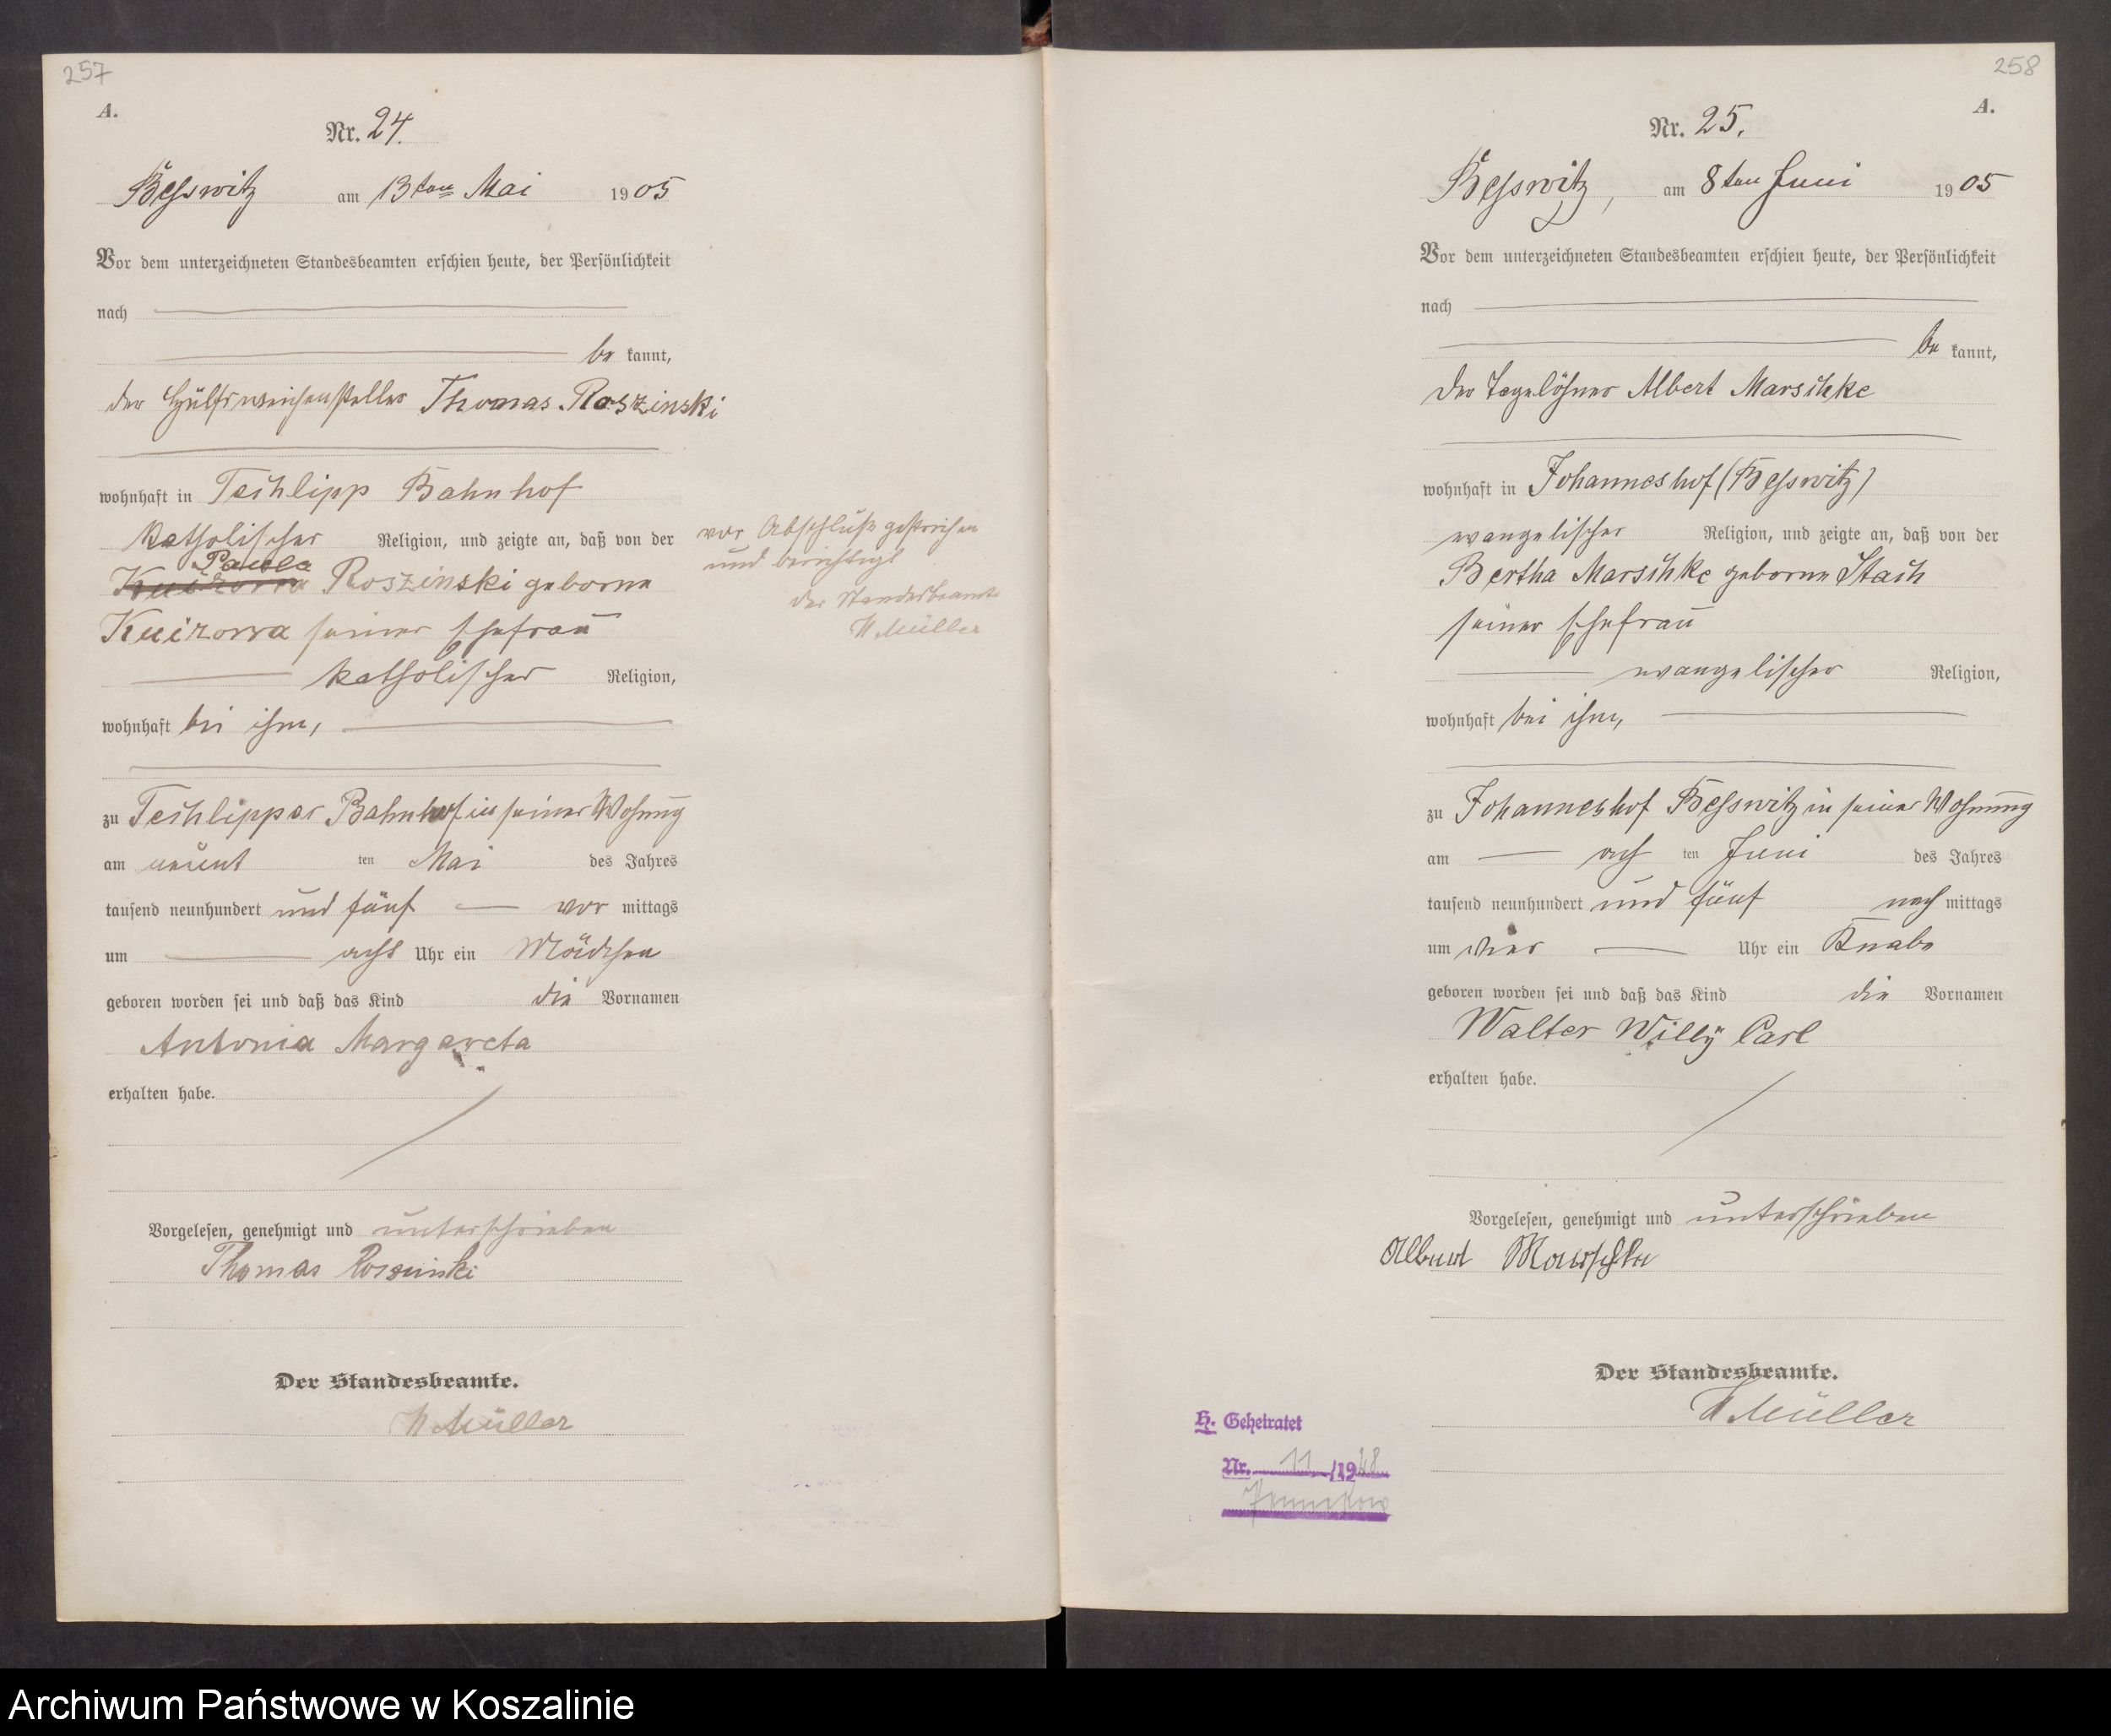 257
A.
Nr. 24.
Besswitz am 13ten Mai 1905
Vor dem unterzeichneten Standesbeamten erschien heute, der Persönlichkeit
nach
be kannt,
der Hülfsweichensteller Thomas Roszinski
wohnhaft in Techlipp Bahnhof
katholischer Religion, und zeigte an, daß von der
Paula
Roszinski geborne
seiner Ehefrau
katholischer Religion,
wohnhaft bei ihm,
zu Techlipper Bahnhof in seiner Wohnung
am neunt ten Mai des Jahres
tausend neunhundert und fünf vor mittags
um acht Uhr ein Mädchen
geboren worden sei und daß das Kind die Vornamen
Antonia Margareta
erhalten habe.
Vorgelesen, genehmigt und unterschrieben
Thomas Roszinski
Der Standesbeamte.
W Müller
vor Abschluß gestrichen
und berichtigt
der Standesbeamte
W Müller
258
A.
Nr. 25.
Besswitz, am 8ten Juni 1905
Vor dem unterzeichneten Standesbeamten erschien heute, der Persönlichkeit
nach
be kannt,
der Tagelöhner Albert Marschke
wohnhaft in Johanneshof (Besswitz)
evangelischer Religion, und zeigte an, daß von der
Bertha Marschke geborne Stach
seiner Ehefrau
evangelischer Religion,
wohnhaft bei ihm,
zu Johanneshof Besswitz in seiner Wohnung
am ach ten Juni des Jahres
tausend neunhundert und fünf nach mittags
um vier Uhr ein Knabe
geboren worden sei und daß das Kind die Vornamen
Walter Willy Carl
erhalten habe.
Vorgelesen, genehmigt und unterschrieben
Albert Marschke
Der Standesbeamte.
W Müller
H. Geheiratet
Nr. 11 /19
Archiwum Państwowe w Koszalinie